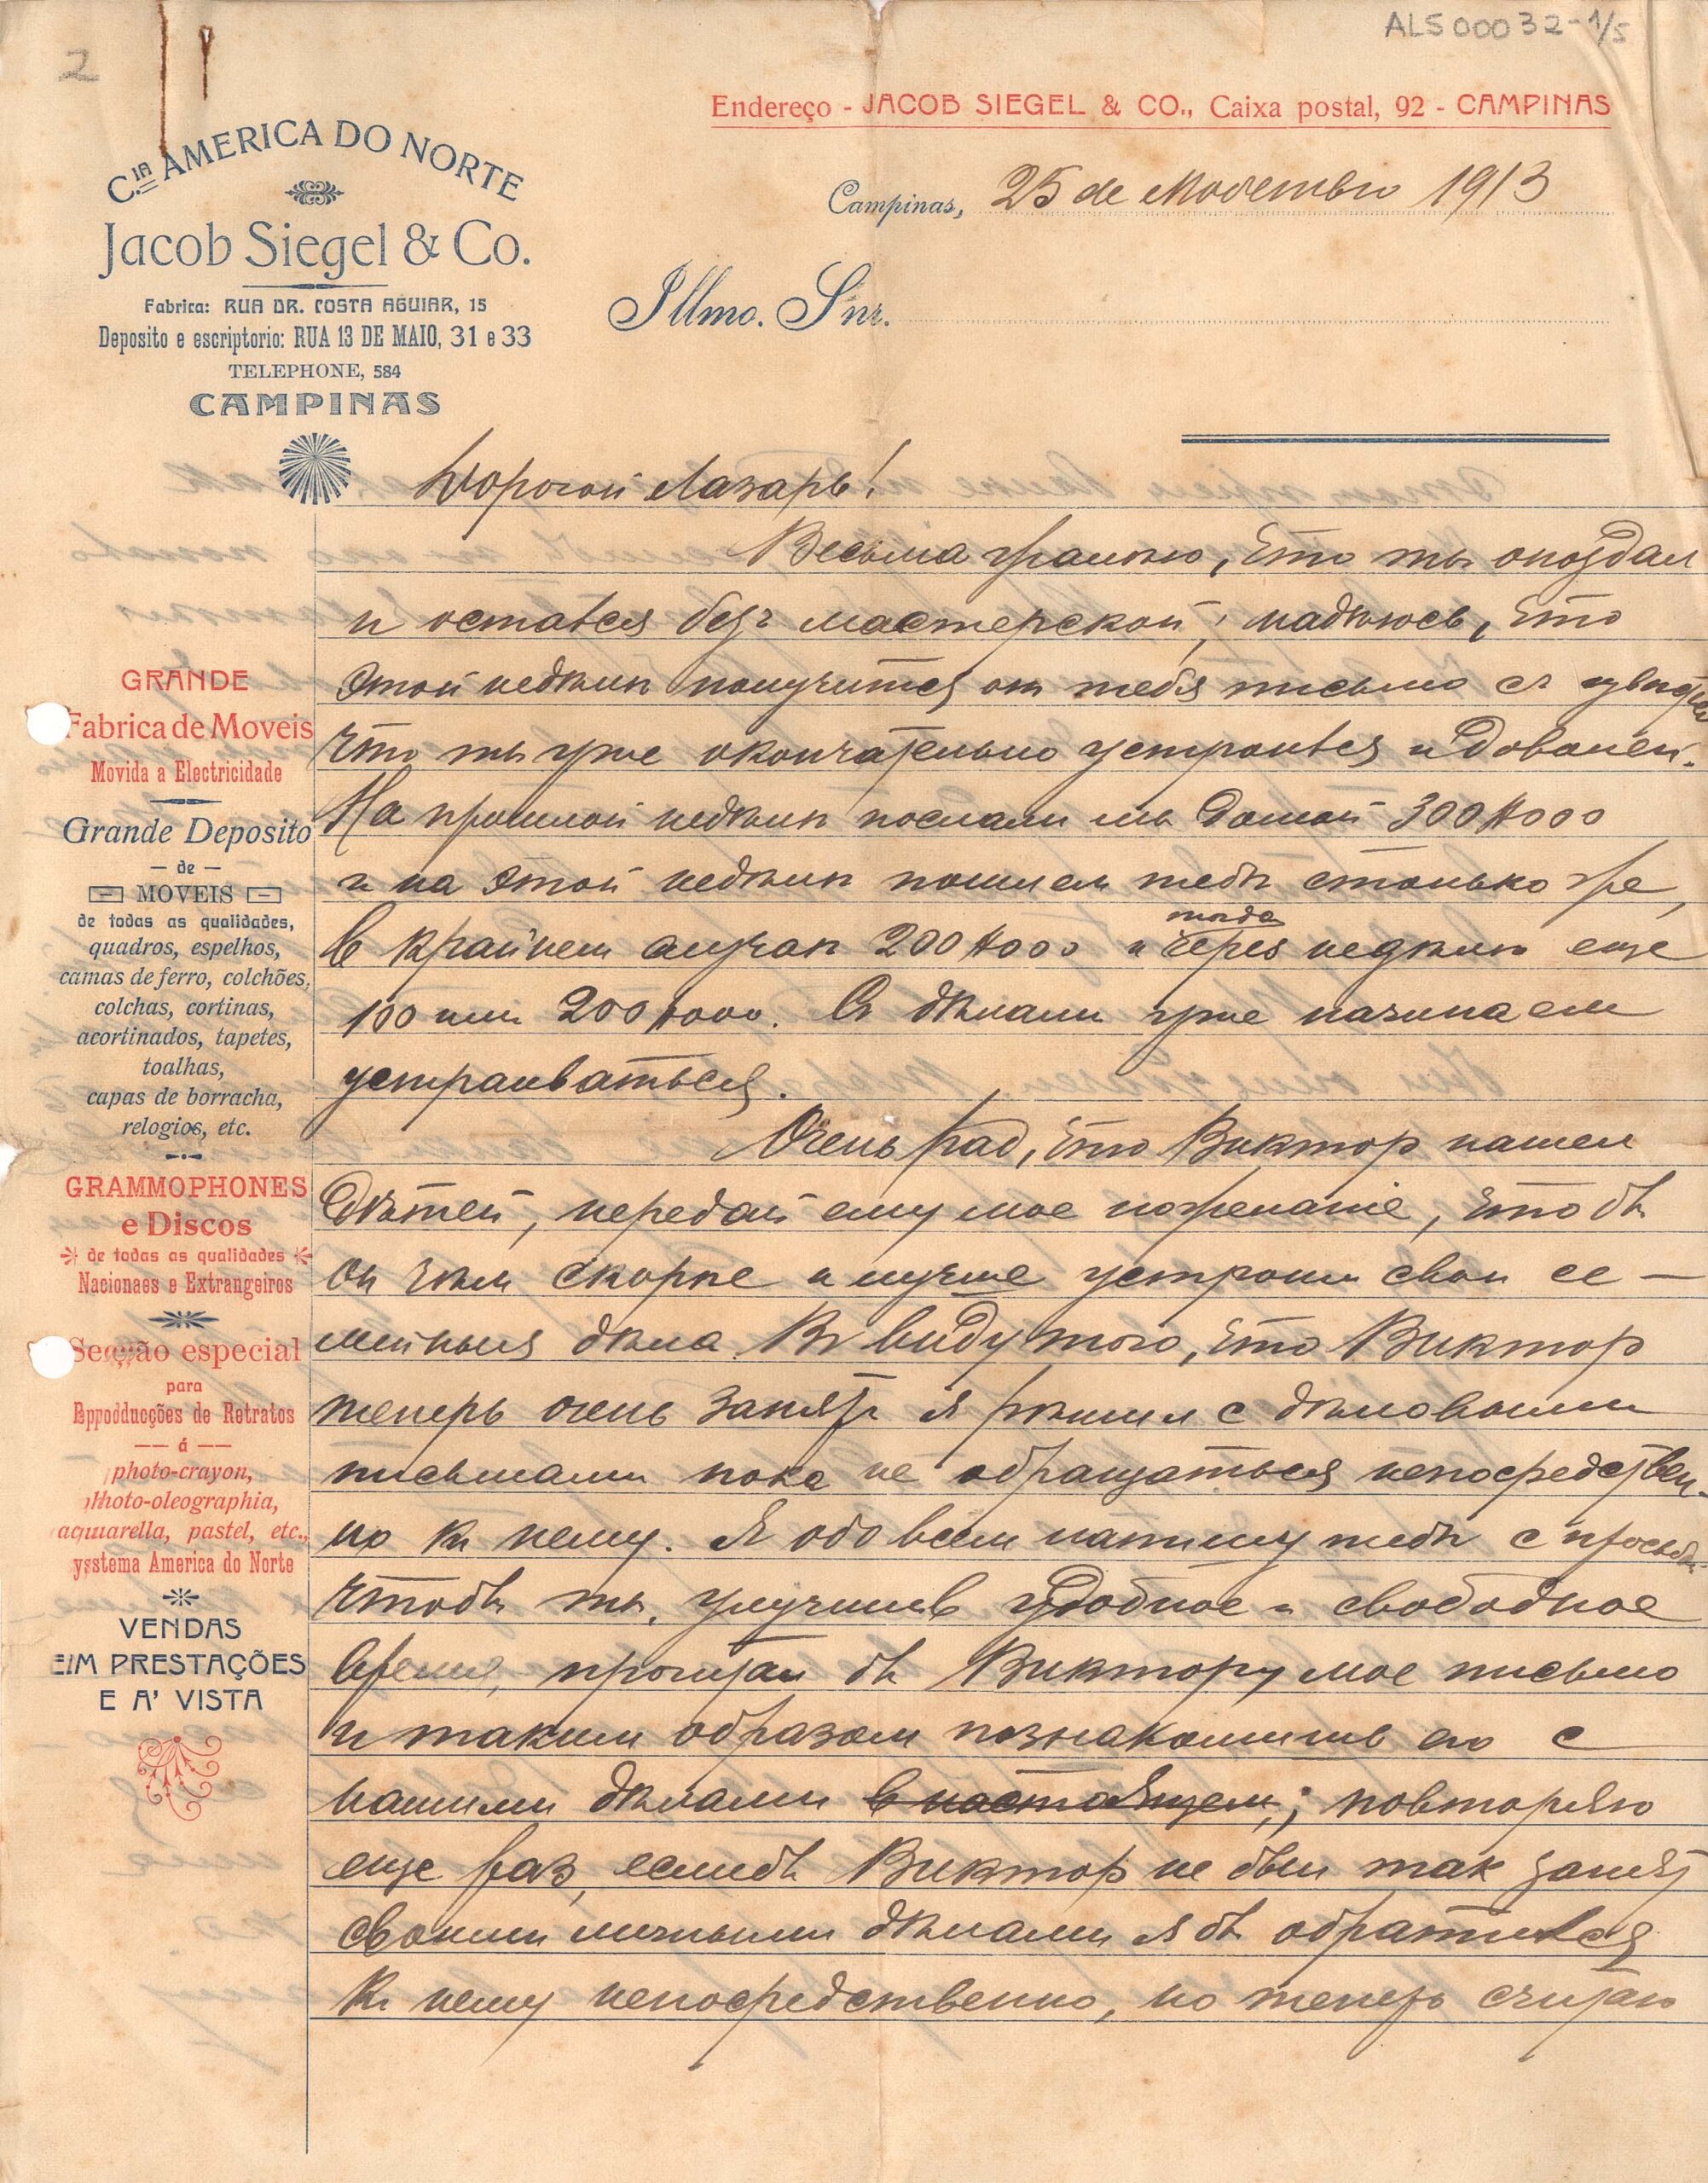 2
ALS00032-1/5
Endereço - JACOB SIEGEL & CO., Caixa postal, 92 - CAMPINAS
C.IA AMERICA DO NORTE
Jacob Siegel & Co.
Fabrica: RUA DR. COSTA AGUIAR, 15
Deposito e escriptorio: RUA 13 DE MAIO, 31 e 33
TELEPHONE, 584
CAMPINAS
Campinas, 25 de Novembro 1913
Illmo. Snr.
Дорогой Лазарь!
Весьма жалко, что ты опоздал
и остался безъ мастерской; надѣюсь, что
этой недѣли получится от тебя письмо съ
что ты уже окончательно устроился и доволен.
На прошлой недѣли послали мы домой 300$000
и на этой недѣли пошлем тебѣ столько же,
в крайнем случаѣ 200$000 и тогда через недѣлю еще
100 или 200$000. Съ дѣлами уже начинаем
устраиваться.
Очень рад, что Виктор нашел
дѣтей, передай ему мое пожеланіе, чтобъ
он чѣм скорѣе и лучше устроил свои се-
мейныя дѣла. Въ виду того, что Виктор
теперь очень занятъ я рѣшил с дѣловыми
письмами пока не обращаться непосредствен-
но къ нему. Я обо всем напишу тебѣ с просьбой
чтобъ ты, улучшив удобное и свободное
время, прочитал бъ Виктору мое письмо
и таким образом познакомишь его с
нашими дѣлами в настоящем; повторяю
еще раз, еслибъ Виктор не был так занят
своими личными дѣлами я бъ обратился
къ нему непосредственно, но теперь считаю
GRANDE
Fabrica de Moveis
Movida a Electricidade
Grande Deposito
— de —
MOVEIS
de todas as qualidades,
quadros, espelhos,
camas de ferro, colchões,
colchas, cortinas,
acortinados, tapetes,
toalhas,
capas de borracha,
relogios, etc.
GRAMMOPHONES
e Discos
de todas as qualidades
Nacionaes e Extrangeiros
Secção especial
para
Reproducções de Retratos
— á —
photo-crayon,
photo-oleographia,
aquarella, pastel, etc.,
systema America do Norte
VENDAS
EM PRESTAÇÕES
E A' VISTA